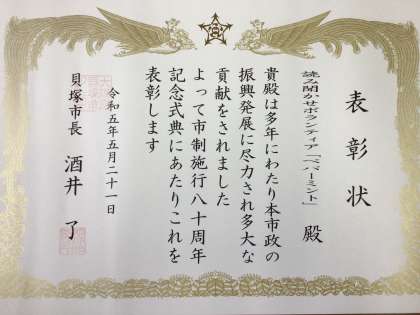 表彰状
読み聞かせボランティア「ペパーミント」殿
貴殿は多年にわたり本市政の
振興発展に尽力され多大な
貢献をされました
よって市制施行八十周年
記念式典にあたりこれを
表彰します
令和五年五月二十一日
貝塚市長 酒井 了